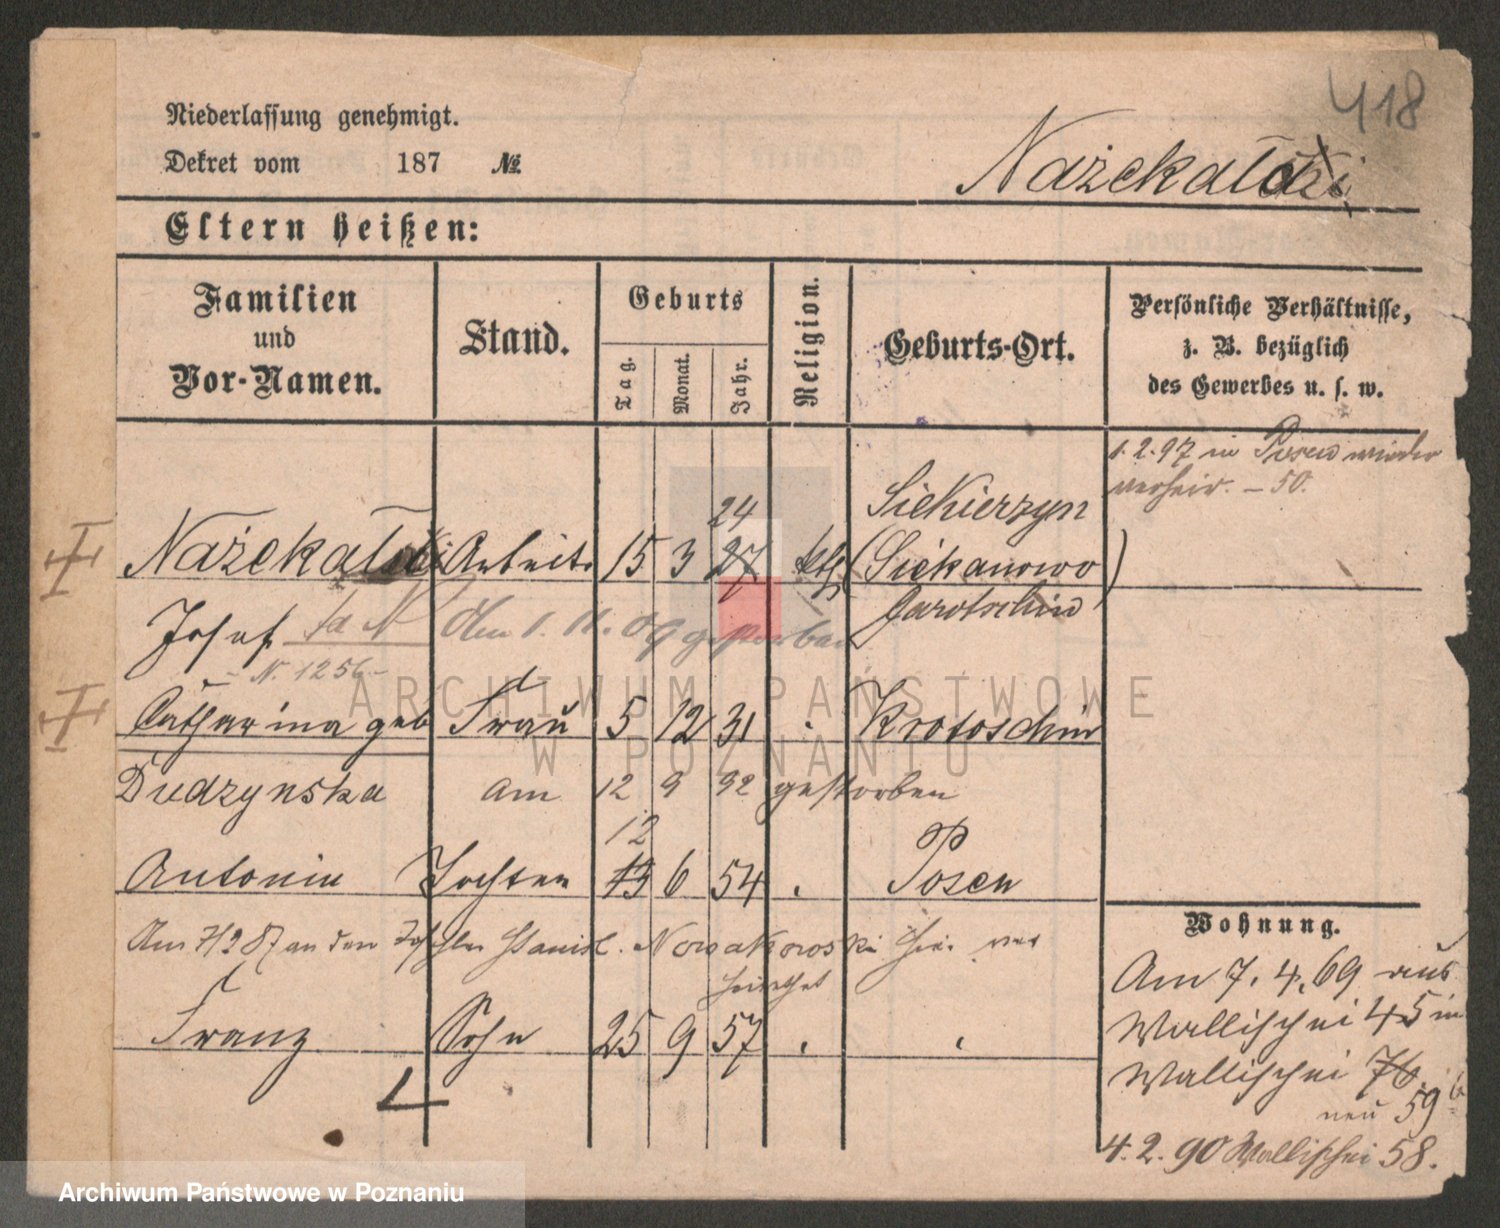 418
Niederlassung genehmigt.
Dekret vom 187 №
Nażekała
Eltern heißen:
Familien und Vor-Namen.
Stand.
Geburts
Tag. Monat. Jahr.
Religion.
Geburts-Ort.
Persönliche Verhältnisse,
z. B. bezüglich
des Gewerbes u. s. w.
1. 2. 97 in Posen wieder
verheir. – 50.
24
Siekierzyn
Nażekała Arbeit. 15 3 27 kth (Siekanowo)
Josef Den 1. 11. 09 gestorben Jarotschin
N. 1256
Catharina geb Frau 5 12 31 Krotoschin
Dudzynska am 12 9 92 gestorben
12
Antonia Tochter 13 6 54 Posen
Am 7/2 87 an den Tischler Stanisl. Nowakowski hier ver
heirathet
Franz Sohn 25 9 57
Wohnung.
Am 7. 4. 69 aus
Wallischei 45 in
Wallischei 76.
neu 59 b
4. 2. 90 Wallischei 58.
ARCHIWUM PAŃSTWOWE
W POZNANIU
Archiwum Państwowe w Poznaniu